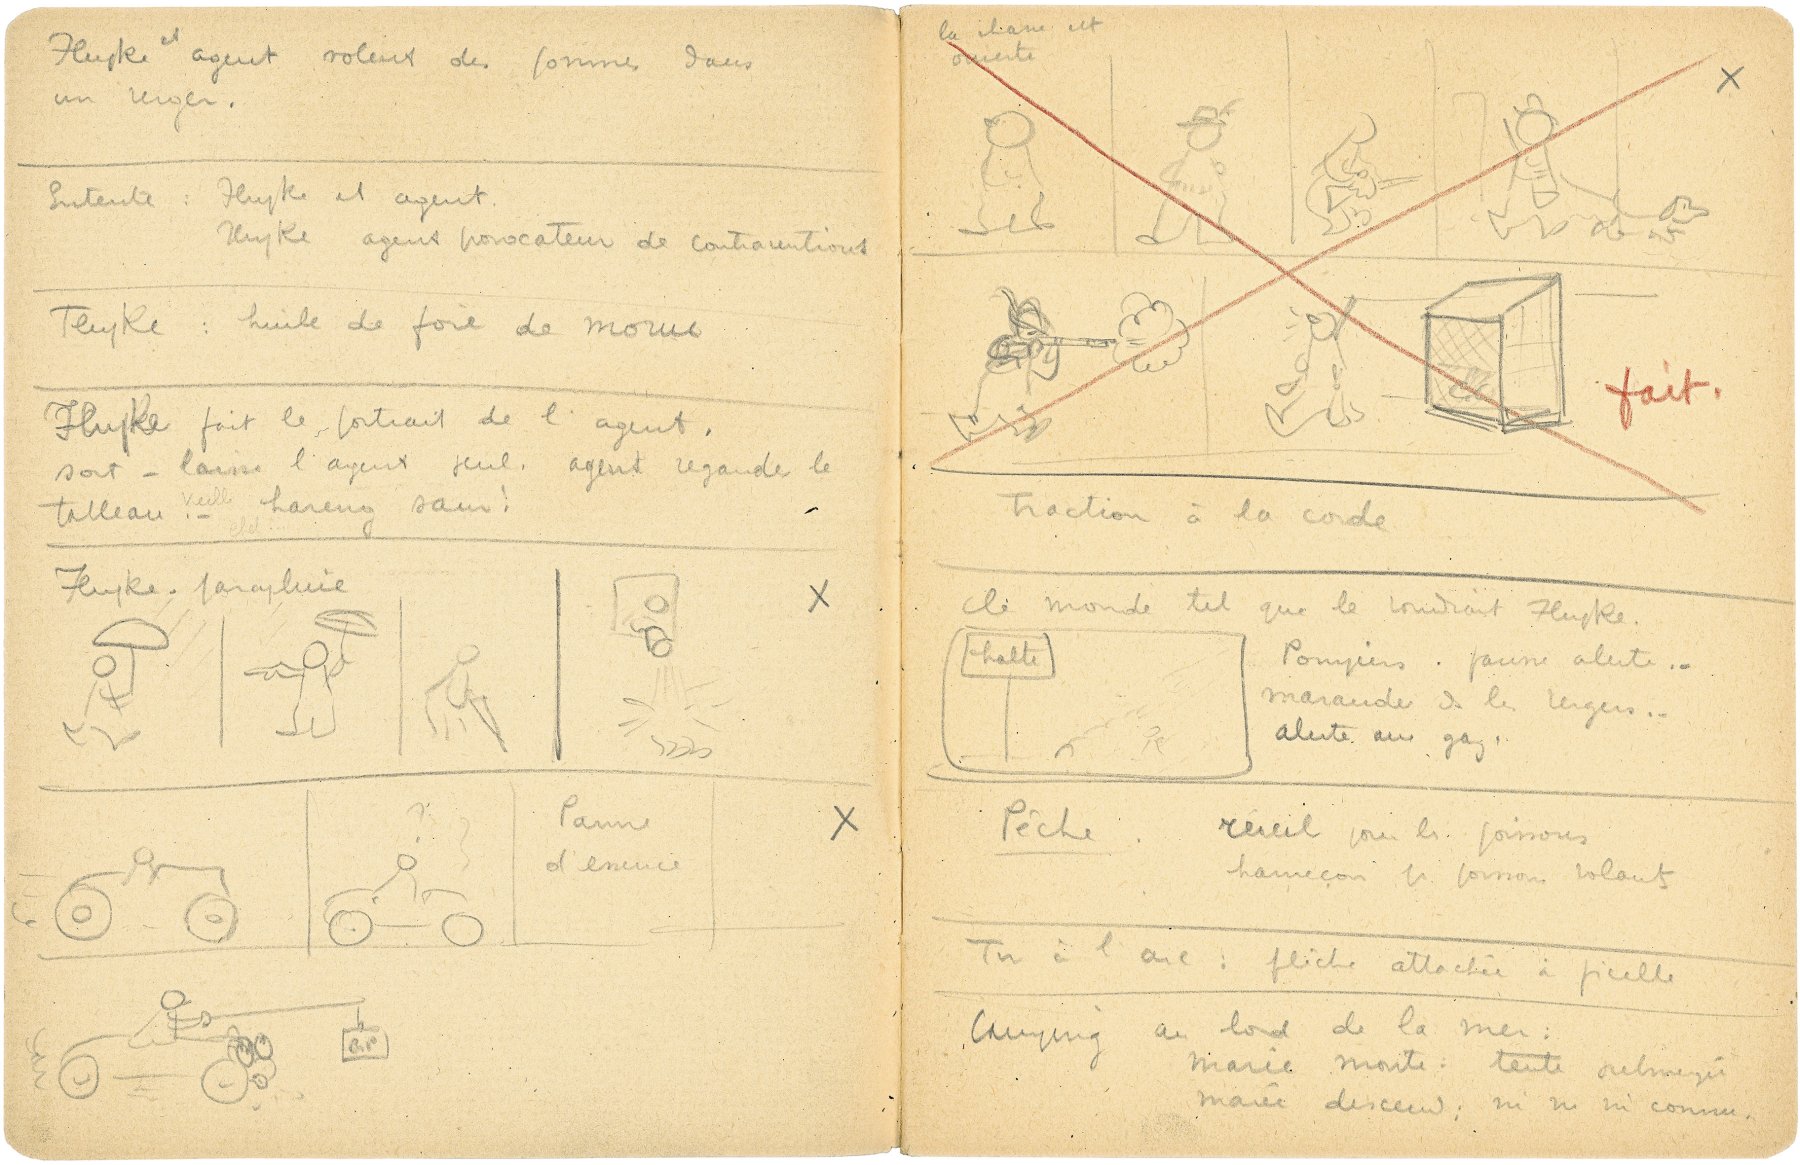 Flupke et agent volent des pommes dans
un verger.
Entente : Flupke et agent.
Flupke agent provocateur de contraventions
Flupke : huile de foie de morue
Flupke fait le portrait de l'agent.
sort - laisse l'agent seul. agent regarde le
tableau : - hareng saur!
Flupke. parapluie
Panne
d'essence
la chasse est
ouverte
fait.
Traction à la corde
Le monde tel que le voudrait Flupke.
halte
Pompiers. fausse alerte..
maraude ds les vergers..
alerte aux gaz.
Pêche. réveil pour les poissons
hameçon pr poissons volants
Tir à l'arc : flèche attachée à ficelle
Camping au bord de la mer :
marée monte : tente submergée
marée descend; ni vu ni connu.